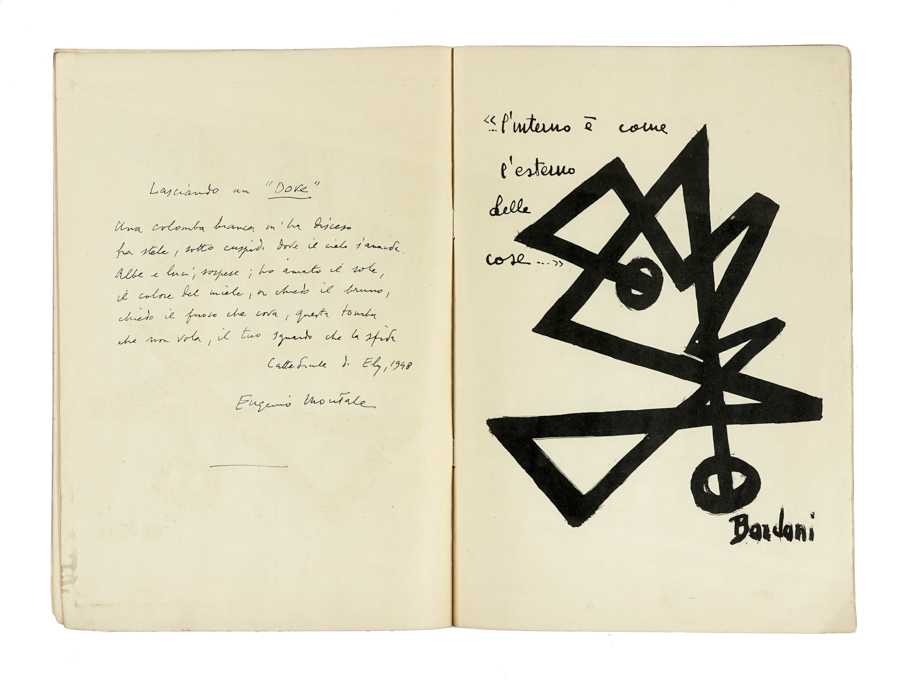 Lasciando un "Dove"
Una colomba bianca m'ha disceso
fra stele, sotto cuspidi dove il cielo s'annida.
Albe e luci, sospese; ho amato il sole,
il colore del miele, or chiedo il bruno,
chiedo il fuoco che cova, questa tomba
che non vola, il tuo sguardo che la sfida
Cattedrale di Ely, 1948
Eugenio Montale
«...l'interno è come
l'esterno
delle
cose...»
Bardoni